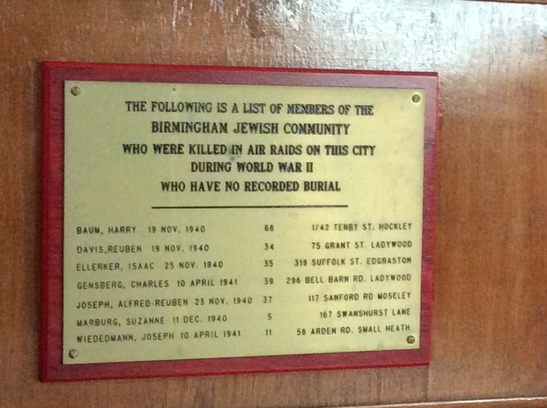 THE FOLLOWING IS A LIST OF MEMBERS OF THE
BIRMINGHAM JEWISH COMMUNITY
WHO WERE KILLED IN AIR RAIDS ON THIS CITY
DURING WORLD WAR II
WHO HAVE NO RECORDED BURIAL
BAUM, HARRY 19 NOV. 1940 66 1/42 TENBY ST. HOCKLEY
DAVIS,REUBEN 19 NOV. 1940 34 75 GRANT ST. LADYWOOD
ELLERKER, ISAAC 25 NOV. 1940 35 319 SUFFOLK ST. EDGBASTON
GENSBERG, CHARLES 10 APRIL 1941 39 296 BELL BARN RD. LADYWOOD
JOSEPH, ALFRED-REUBEN 23 NOV. 1940 37 117 SANFORD RD MOSELEY
MARBURG, SUZANNE 11 DEC. 1940 5 167 SWANSHURST LANE
WIEDEDMANN, JOSEPH 10 APRIL 1941 11 56 ARDEN RD. SMALL HEATH